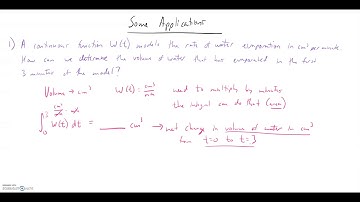 Some Applications
1) A continuous function W(t) models the rate of water evaporation in cm³ per minute.
How can we determine the volume of water that has evaporated in the first
3 minutes of the model?
Volume → cm³ W(t) = cm³/min need to multiply by minutes
the integral can do that (area)
cm³/min · min
∫₀³ W(t) dt = _____ cm³ → net change in volume of water in cm³
from t=0 to t=3